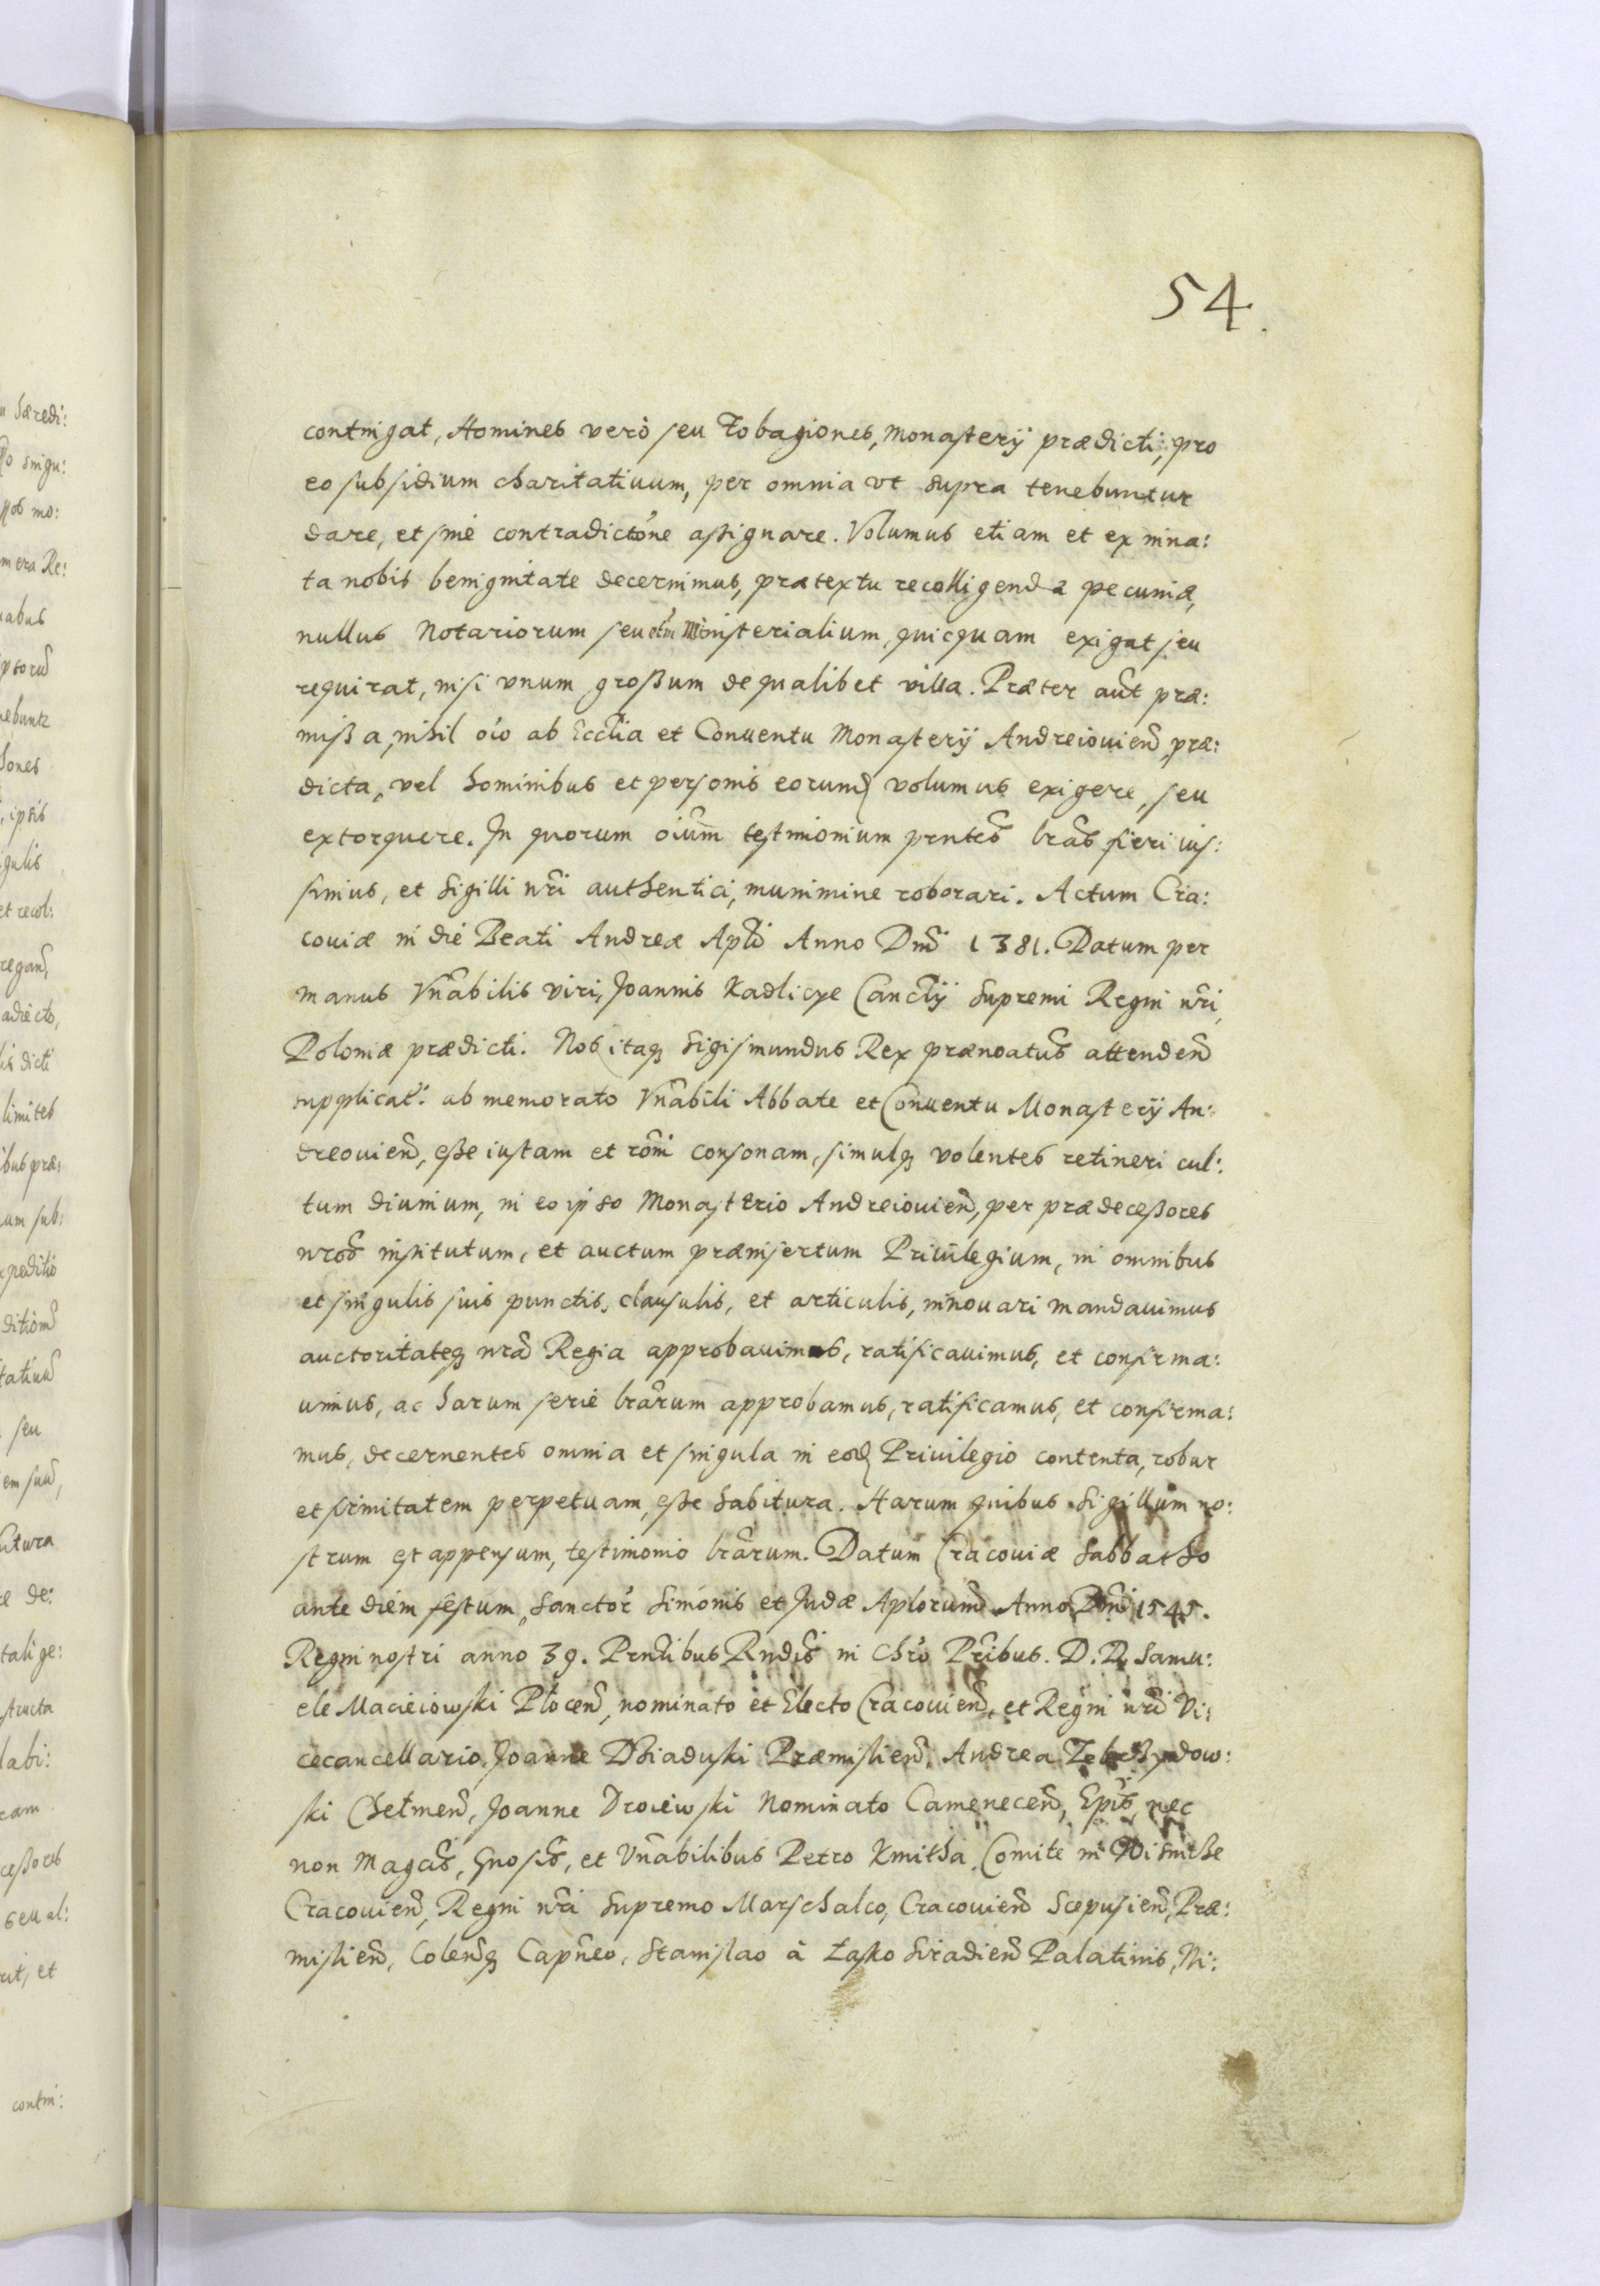 54.
contingat, Homines verò seu Tobagiones, Monasterij prædicti, pro
eo subsidium charitatiuum, per omnia vt supra tenebuntur
dare, et sinè contradictóne assignare. Volumus etiam et ex inna:
ta nobis benignitate decernimus, prætextu recolligendæ pecuniæ,
nullus Notariorum seu etm̃ Ministerialium, quicquam exigat seu
requirat, nisi vnum großum de qualibet villa. Præter aut̃ præ:
mißa, nihil oĩo ab Eccl̃ia et Conuentu Monasterij Andreiouien̄, præ:
dicta, vel hominibus et personis eorund̃ volumus exigere, seu
extorquere. In quorum oium̃ testimonium prñtes lr̃as fieri ius:
simus, et Sigilli nr̃i authentici, munimine roborari. Actum Cra:
couiæ in diè Beati Andreæ Apl̃i Anno Dnĩ 1381. Datum per
manus Vñabilis viri, Joannis Kadlicye Canclr̃ij Supremi Regni nr̃i,
Poloniæ prædicti. Nos itaq̃ Sigismundus Rex prænoatus̃ attenden̄
supplicat̃: ab memorato Vñabili Abbate et Conuentu Monasterij An:
dreouien̄, eße iustam et rõni consonam, simulq̃ volentes retineri cul:
tum diuinum, in eo ipso Monasterio Andreiouien̄, per prædeceßores
nr̃os institutum, et auctum præinsertum Priuilegium, in omnibus
et singulis suis punctis, clausulis, et articulis, innouari mandauimus
auctoritateq̃ nr̃a Regia approbauimus, ratificauimus, et confirma:
uimus, ac harum seriè lr̃arum approbamus, ratificamus, et confirma:
mus, decernentes omnia et singula in eod̃ Priuilegio contenta, robur
et firmitatem perpetuam, eße habitura. Harum quibus Sigillum no:
strum est appensum, testimonio lr̃arum. Datum Cracouiæ Sabbatho
ante diem festum, Sanctor̃ Simónis et Judæ Aplorum̃ Anno Dnĩ 1545.
Regni nostri anno 39. Prñtibus Rñdis̃ in Chrõ Pr̃ibus. D. D. Samu:
ele Macieiowski Plocen̄, nominato et Electo Cracouien̄, et Regni nr̃i Vi:
cecancellario, Joanne Dziaduski Præmislien̄, Andrea Zebrzydow:
ski Chełmen̄, Joanne Droiewski Nominato Camenecen̄, Epis̃, nec
non Magcis̃, Gnosis̃, et Vñabilibus Petro Kmitha, Comite in Wisnicze
Cracouien̄, Regni nr̃i Supremo Marschalco, Cracouien̄ Scepusien̄, Præ:
mislien̄, Colenq̃ Capñeo, Stanislao à Łasko Siradien̄ Palatinis, Ni: